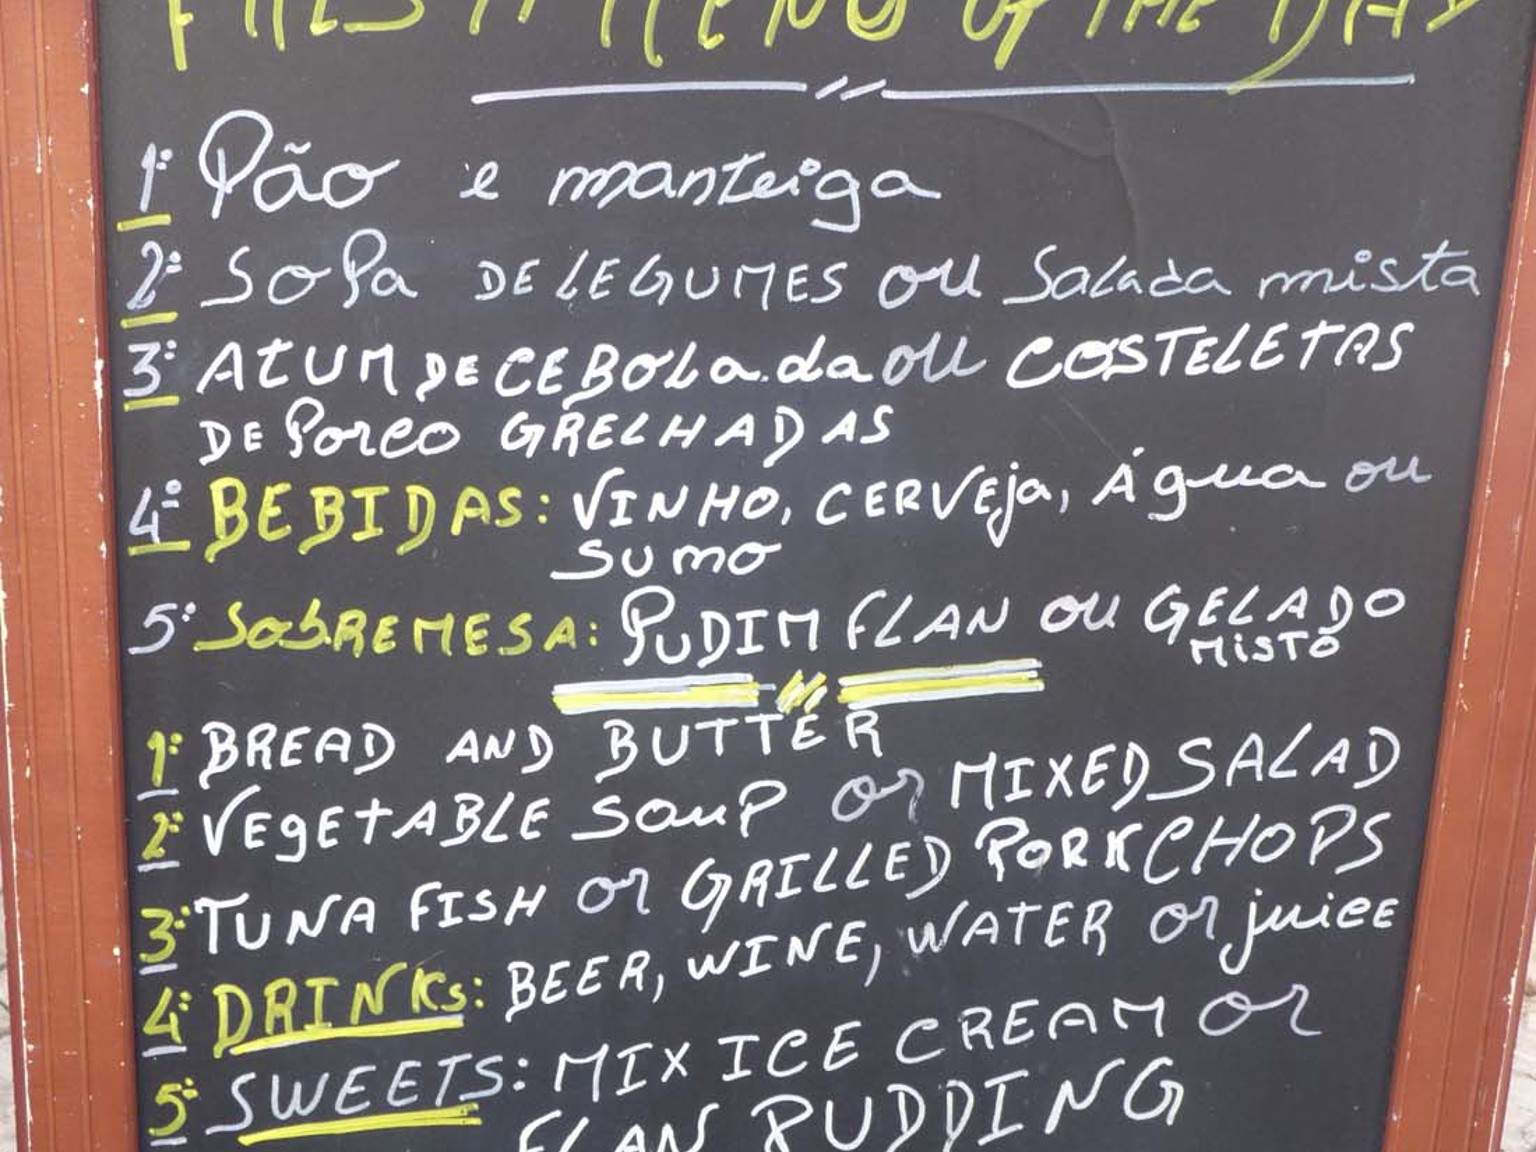 MENU OF THE DAY
1º Pão e manteiga
2º SoPa DE LEGUMES ou Salada mista
3º AtUM DE CEBOLada ou COSTELETAS
DE Porco GRELHADAS
4º BEBIDAS: VINHO, CERVEja, Água ou
SUMO
5º SobREMESA: PUDIM FLAN ou GELADO
MiSTO
1º BREAD AND BUTTER
2º VEgEtABLE SouP or MIXED SALAD
3º TUNA FISH or GRILLED PORK CHOPS
4º DRINKs: BEER, WINE, WATER or juicE
5º SWEETS: MIX ICE CREAM or
FLAN PUDDING